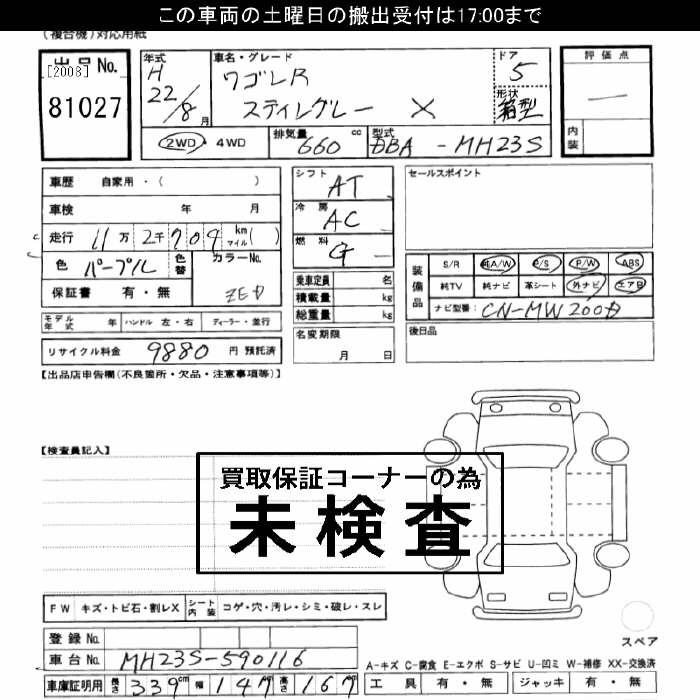 この車両の土曜日の搬出受付は17:00まで
(複合機)対応用紙
出品No.
[2008]
81027
年式 H 22/8 月
車名・グレード ワゴンR スティングレー X
ドア 5
形状 箱型
2WD ・ 4WD
排気量 660 cc
型式 DBA - MH23S
評価点 —
内装
車歴 自家用・( )
車検 年 月
走行 11万 2千 709 km マイル( )
色 パープル 色替 カラーNo. ZED
保証書 有・無
モデル年式 年 ハンドル 左・右 ディーラー・並行
リサイクル料金 9880 円 預託済
シフト AT
冷房 AC
燃料 G
乗車定員 名
積載量 kg
総重量 kg
名変期限 月 日
セールスポイント
装備品
S/R 純A/W P/S P/W ABS
純TV 純ナビ 革シート 外ナビ エアB
ナビ型番: CN-MW200D
後日品
【出品店申告欄(不良箇所・欠品・注意事項等)】
【検査員記入】
買取保証コーナーの為
未検査
FW キズ・トビ石・割レX シート内装 コゲ・穴・汚レ・シミ・破レ・スレ
登録No.
車台No. MH23S-590116
車庫証明用 長さ 339cm 幅 147 高さ 167
スペア
A-キズ C-腐食 E-エクボ S-サビ U-凹ミ W-補修 XX-交換済
工具 有・無 ジャッキ 有・無